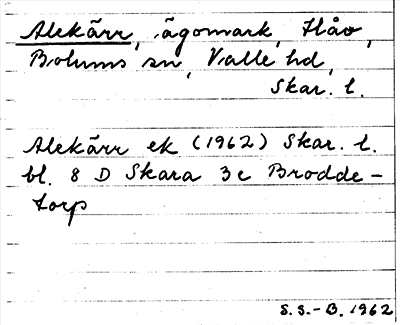 Alekärr, ägomark, Flåv,
Bolums sn, Valle hd,
Skar. l.
Alekärr ek (1962) Skar. l.
bl. 8 D Skara 3c Brodde-
torp
S. S.-B. 1962